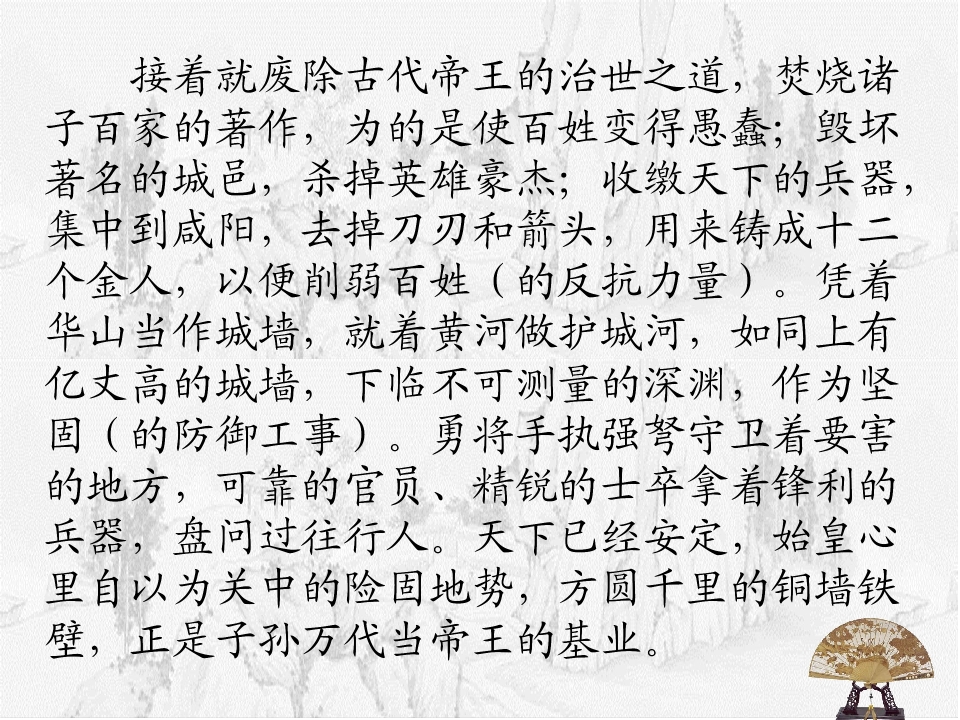 接着就废除古代帝王的治世之道，焚烧诸
子百家的著作，为的是使百姓变得愚蠢；毁坏
著名的城邑，杀掉英雄豪杰；收缴天下的兵器，
集中到咸阳，去掉刀刃和箭头，用来铸成十二
个金人，以便削弱百姓（的反抗力量）。凭着
华山当作城墙，就着黄河做护城河，如同上有
亿丈高的城墙，下临不可测量的深渊，作为坚
固（的防御工事）。勇将手执强弩守卫着要害
的地方，可靠的官员、精锐的士卒拿着锋利的
兵器，盘问过往行人。天下已经安定，始皇心
里自以为关中的险固地势，方圆千里的铜墙铁
壁，正是子孙万代当帝王的基业。